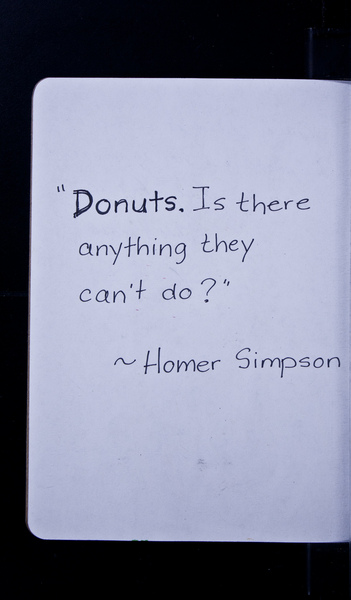 "Donuts. Is there
anything they
can't do?"
~ Homer Simpson